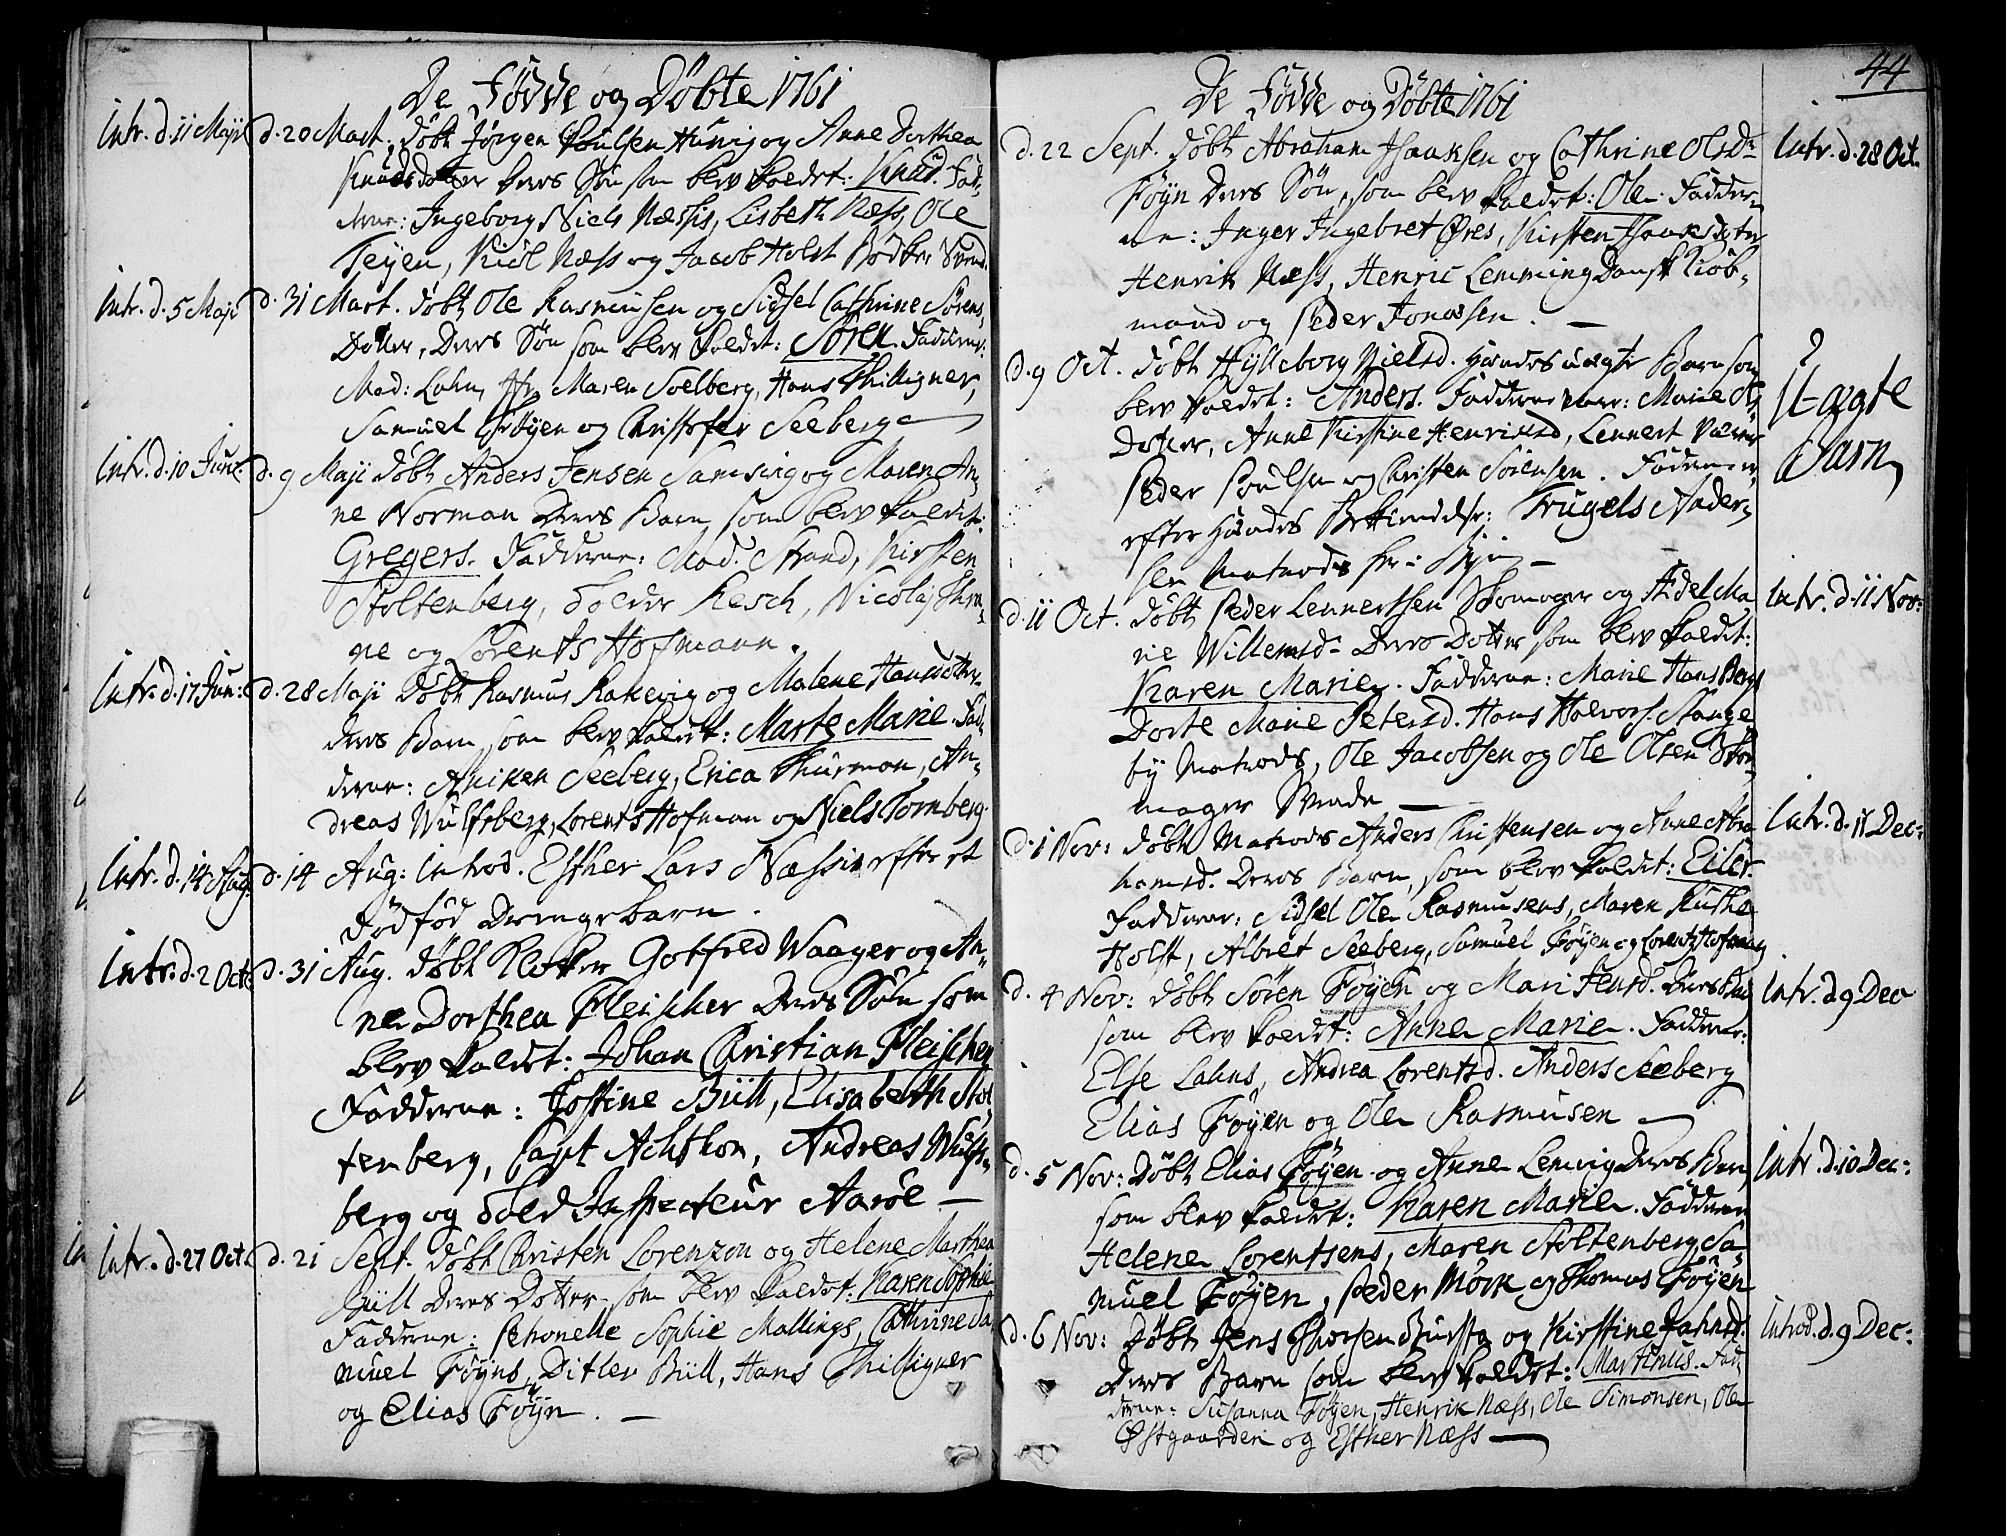 De Fødde og Døbte 1761
Intr. d. 11 Maji d. 20 Mart. døbt Jørgen Poulsen Hunig og Anne Dorthea
Knudsdotter deres Søn som blev kaldet: Knud. Fad-
derne: Ingeborg Niels Næssis, Lisbeth Næss, Ole
Teyen, Kiøl Næss og Jacob Holst Bødker Svend.
Intr. d. 5 Maji d. 31 Mart. døbt Ole Rasmusen og Sidsel Cathrine Sørens
Dotter, Deres Søn som blev kaldet: Søren. Fadderne:
Mad: Lahn, Jfr. Maren Soelberg, Hans Thilligner,
Samuel Føyen og Christofer Seeberg
Intr. d. 10 Jun: d. 9 Maji døbt Anders Jensen Samsing og Maren An-
ne Norman Deres Barn, som blev kaldet:
Gregers. Fadderne: Mad. Strand, Kirsten
Stoltenberg, Tolder Resch, Nicolaj Thra-
ne og Lorents Hofmann.
Intr. d. 17 Jun: d. 28 Maji Døbt Rasmus Rakevig og Malene Hansdotter
deres Barn som blev kaldet: Marte Marie. Fad-
derne: Aniken Seeberg, Erica Thurman, An-
dreas Wulfsberg, Lorents Hofman og Niels Tornberg
Intr. d. 14 Aug. d. 14 Aug: introd. Esther Lars Næssis efter et
dødfød Drengebarn.
Intr. d. 2 Oct. d. 31 Aug. døbt Klokker Gotfred Waager og An-
ne Dorthea Fleischer Deres Søn som
blev kaldet: Johan Christian Fleischer
Fadderne: Jostine Büll, Elisabeth Stol
tenberg, Capt Achthon, Andreas Wulfs-
berg og Told Inspecteur Aarøe
Intr. d. 27 Oct. d. 21 Sept. døbt Christen Lorenzon og Helene Marthea
Büll Deres Dotter som blev kaldet: Karen Sophie
Fadderne: Pethonelle Sophie Mallings, Cathrine Sa
muel Føyns, Ditlev Büll, Hans Thilligner
og Elias Føyn.
44
De Fødde og Døbte 1761
d. 22 Sept. døbt Abraham Isaaksen og Cathrine Olsdr Intr. d. 28 Oct.
Føyn Deres Søn, som blev kaldet: Ole. Fadder-
ne: Inger Ingebret Øres, Kirsten Isaaksdotter
Henrik Næss, Henric Lemming Dansk Kiøb-
mand og Peder Jonassen.
d. 9 Oct. døbt Hylleborg Nielsd. Hendes uægte Barn som ?
blev kaldet: Anders. Fadderne vare: Marie Ols Uægte
Dotter, Anne Kirstine Henriksd, Lennert Barn
Peder Poulsen og Christen Sørensen. Faderen er
efter Hendes Bekiendelse: Trugels Ander-
sen Matrods her i Byen
d. 11 Oct. døbt Peder Lennertsen Skomager og Adel Ma Intr. d. 11 Nov:
rie Willemsd. Deres Dotter som blev kaldet:
Karen Marie. Fadderne: Marie Hans Bergs
Dorte Marie Petersd. Hans Halvors. Stange
by Matrods, Ole Jacobsen og Ole Olsen Sko-
mager Svende
d. 1 Nov: døbt Matrods Anders Christensen og Anne Abra Intr. d. 11 Dec:
hamsd. Deres Barn, som blev kaldet: Eiler.
Fadderne: Sidsel Ole Rasmusens, Maren Ruthe
Holst, Albret Seeberg, Samuel Føyen og Lorentz Hofmann
d. 4 Nov: døbt Søren Føyen og Mari Jensd. Deres Barn Intr. d 9 Dec
som blev kaldet: Anne Marie. Fadderne:
Else Lahns, Andrea Lorentsd. Anders Seeberg
Elias Føyen og Ole Rasmusen
d. 5 Nov: Døbt Elias Føyen og Anne Lemvig Deres Barn Intr. d. 10 Dec:
som blev kaldet: Karen Marie. Fadderne
Helene Lorentsens, Maren Stoltenberg, Sa-
muel Føyen, Peder Mørk og Thomas Føyen
d. 6 Nov: Døbt Jens Thorsen Bursta og Kirstine Jahnsd: Introd. d. 9 Dec:
Deres Barn som blev kaldet: Martinus. Fad
derne: Susanna Føyen, Henrik Næss, Ole Simonsen, Ole
Østgaarden og Esther Næss